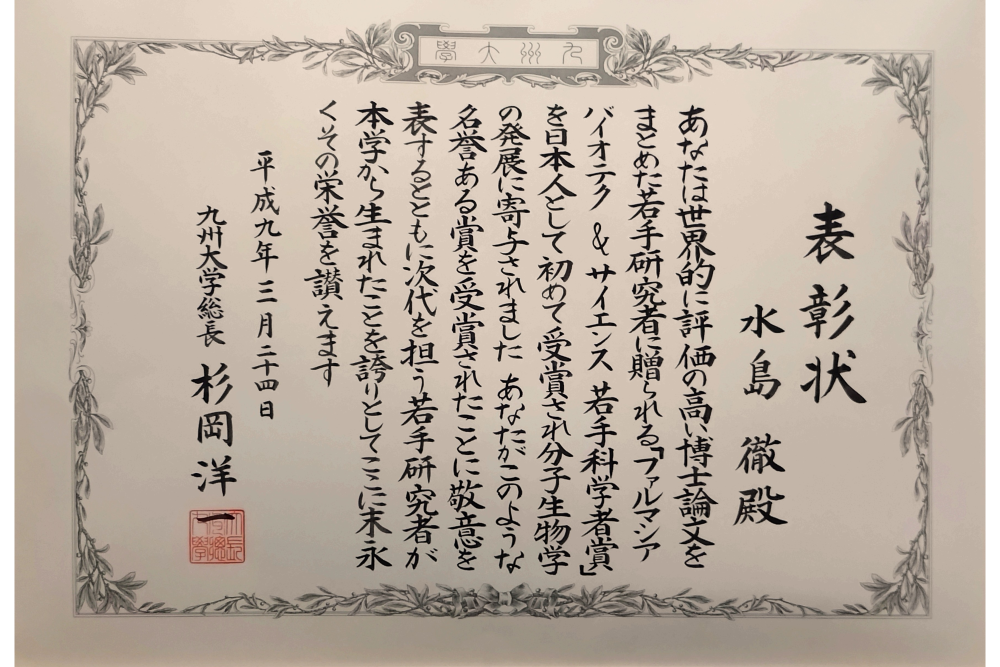 九州大學
表彰状
水島 徹殿
あなたは世界的に評価の高い博士論文を
まとめた若手研究者に贈られる「ファルマシア
バイオテク & サイエンス 若手科学者賞」
を日本人として初めて受賞され分子生物学
の発展に寄与されました あなたがこのような
名誉ある賞を受賞されたことに敬意を
表するとともに次代を担う若手研究者が
本学から生まれたことを誇りとしてここに末永
くその栄誉を讃えます
平成九年三月二十四日
九州大学総長 杉岡洋一